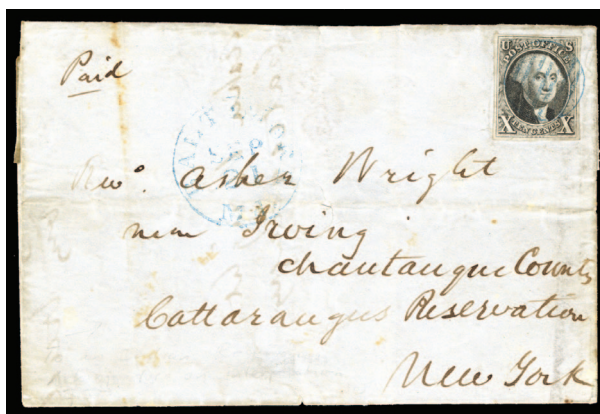 Paid
U S
POST OFFICE
X TEN CENTS X
SEP
Rev. Asher Wright
near Irving
Chautauque County
Cattaraugus Reservation
New York